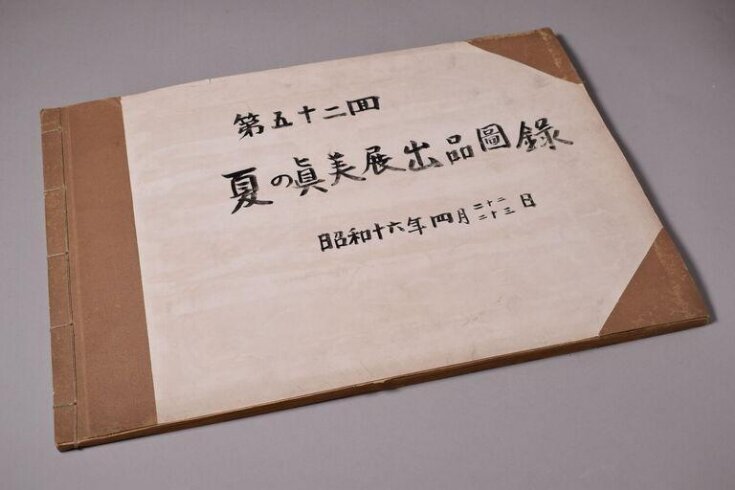 第五十二回
夏の眞美展出品圖錄
昭和十六年四月二十二二十三日